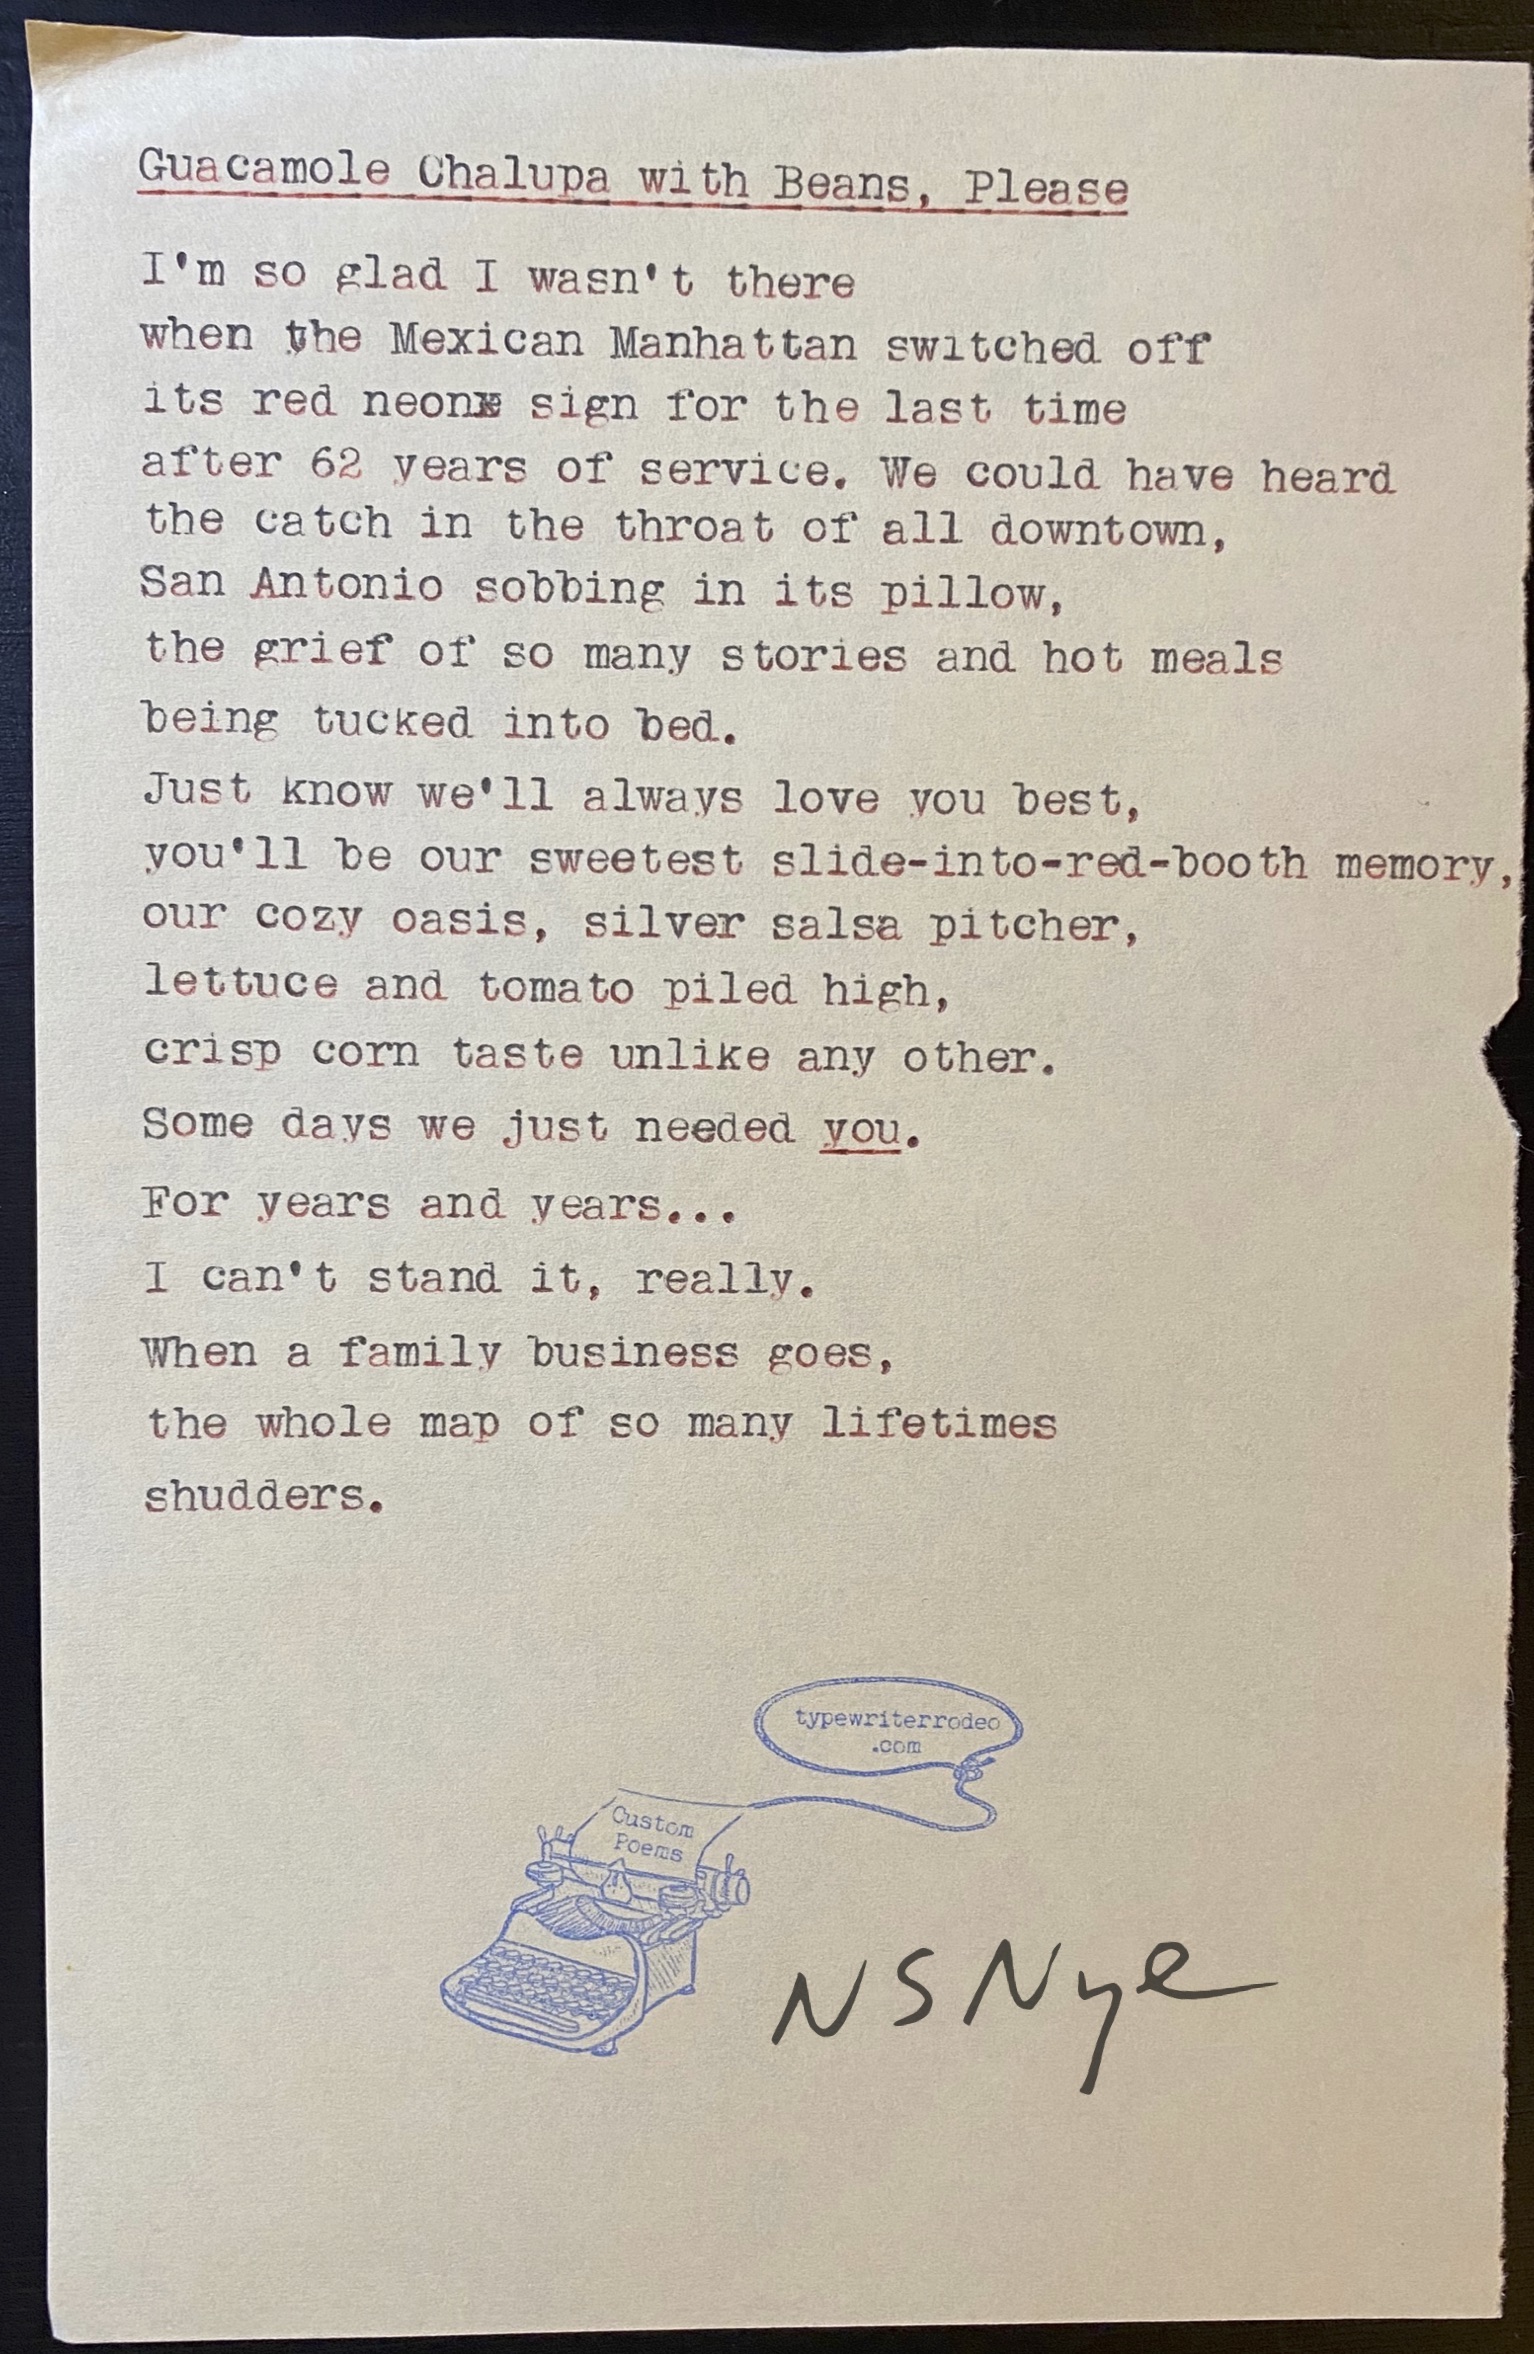 Guacamole Chalupa with Beans, Please
I'm so glad I wasn't there
when the Mexican Manhattan switched off
its red neon sign for the last time
after 62 years of service. We could have heard
the catch in the throat of all downtown,
San Antonio sobbing in its pillow,
the grief of so many stories and hot meals
being tucked into bed.
Just know we'll always love you best,
you'll be our sweetest slide-into-red-booth memory,
our cozy oasis, silver salsa pitcher,
lettuce and tomato piled high,
crisp corn taste unlike any other.
Some days we just needed you.
For years and years...
I can't stand it, really.
When a family business goes,
the whole map of so many lifetimes
shudders.
typewriterrodeo
.com
Custom
Poems
NSNye